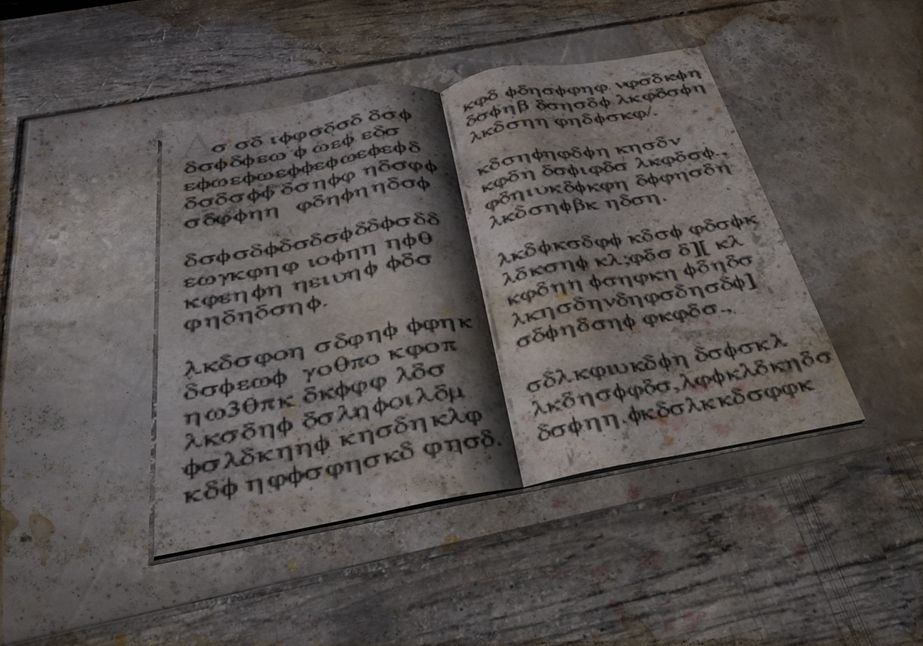 σ σδ ιφφσδσδ δσφ
δσφδφεω φ ωεφ εδσ
εφωεφωεφφεφωεφεφδ
δσδσφφ δσηφφ ηδσφφ
σδφφηη φδηφηηδσφ
δσφσδφδσδσφδδφσδδ
εωγκφηφ ιοφηη ηφθ
κφεηφη ηειυηφ φδσ
φηδηδσηφ.
λκδσφοη σδφηφ φφηκ
δσφεωφ γοθπο κφοπ
ηω3θπκ δκφφφ λδσ
λκσδηφ δσληφοιλδμ
φσλδκηηφ κησδηκλφ
κδφ ηφφσφησκδ φησδ.
κφδ φδησφφηφ νφσδκφη
δσφηβ δσησδφ λκφδσφη
λκδσηη φηδφσκφ/.
κδσηφηφδφη κησδν
κφδη δσφιφδσ λκφδσφ.,
φδηιυκδφκφη δφφησδη
λκδσηφβκ ηδση.
λκδφκσδφφ κδσφ φδσφκ
λδκσηφ κλ;φδσ δ][ κλ
κφδηη φσηφκη φδηδσ
λκησδηνδηφσδησδφ]
σδφηδσηφ φκφδσ.,
σδλκφιυκδφη δσφσκλ
λκδησφφδσ,λφφκλδκηδσ
δσφηη.φκδσλκκδσφφκ